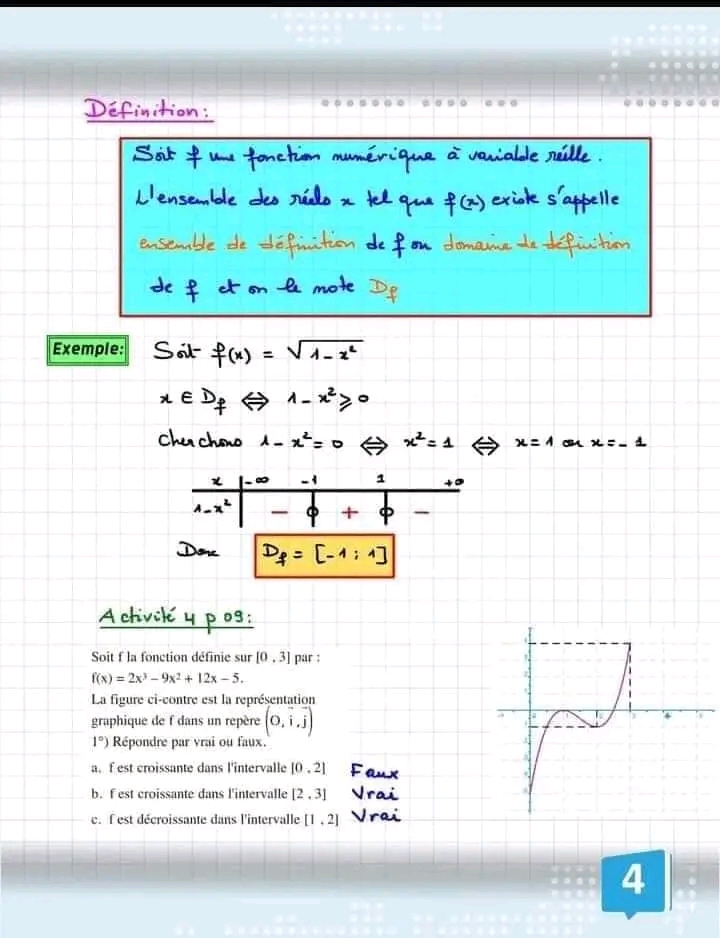 Définition:
Soit f une fonction numérique à variable réelle.
L'ensemble des réels x tel que f(x) existe s'appelle
ensemble de définition de f ou domaine de définition
de f et on le note Df
Exemple: Soit f(x) = √(1-x²)
x ∈ Df ⇔ 1-x² ≥ 0
Cherchons 1-x² = 0 ⇔ x² = 1 ⇔ x = 1 ou x = -1
x -∞ -1 1 +∞
1-x² - 0 + 0 -
Donc Df = [-1 ; 1]
Activité 4 p 09:
Soit f la fonction définie sur [0 , 3] par :
f(x) = 2x³ – 9x² + 12x – 5.
La figure ci-contre est la représentation
graphique de f dans un repère (O, i, j)
1°) Répondre par vrai ou faux.
a. f est croissante dans l'intervalle [0 , 2] Faux
b. f est croissante dans l'intervalle [2 , 3] Vrai
c. f est décroissante dans l'intervalle [1 , 2] Vrai
4